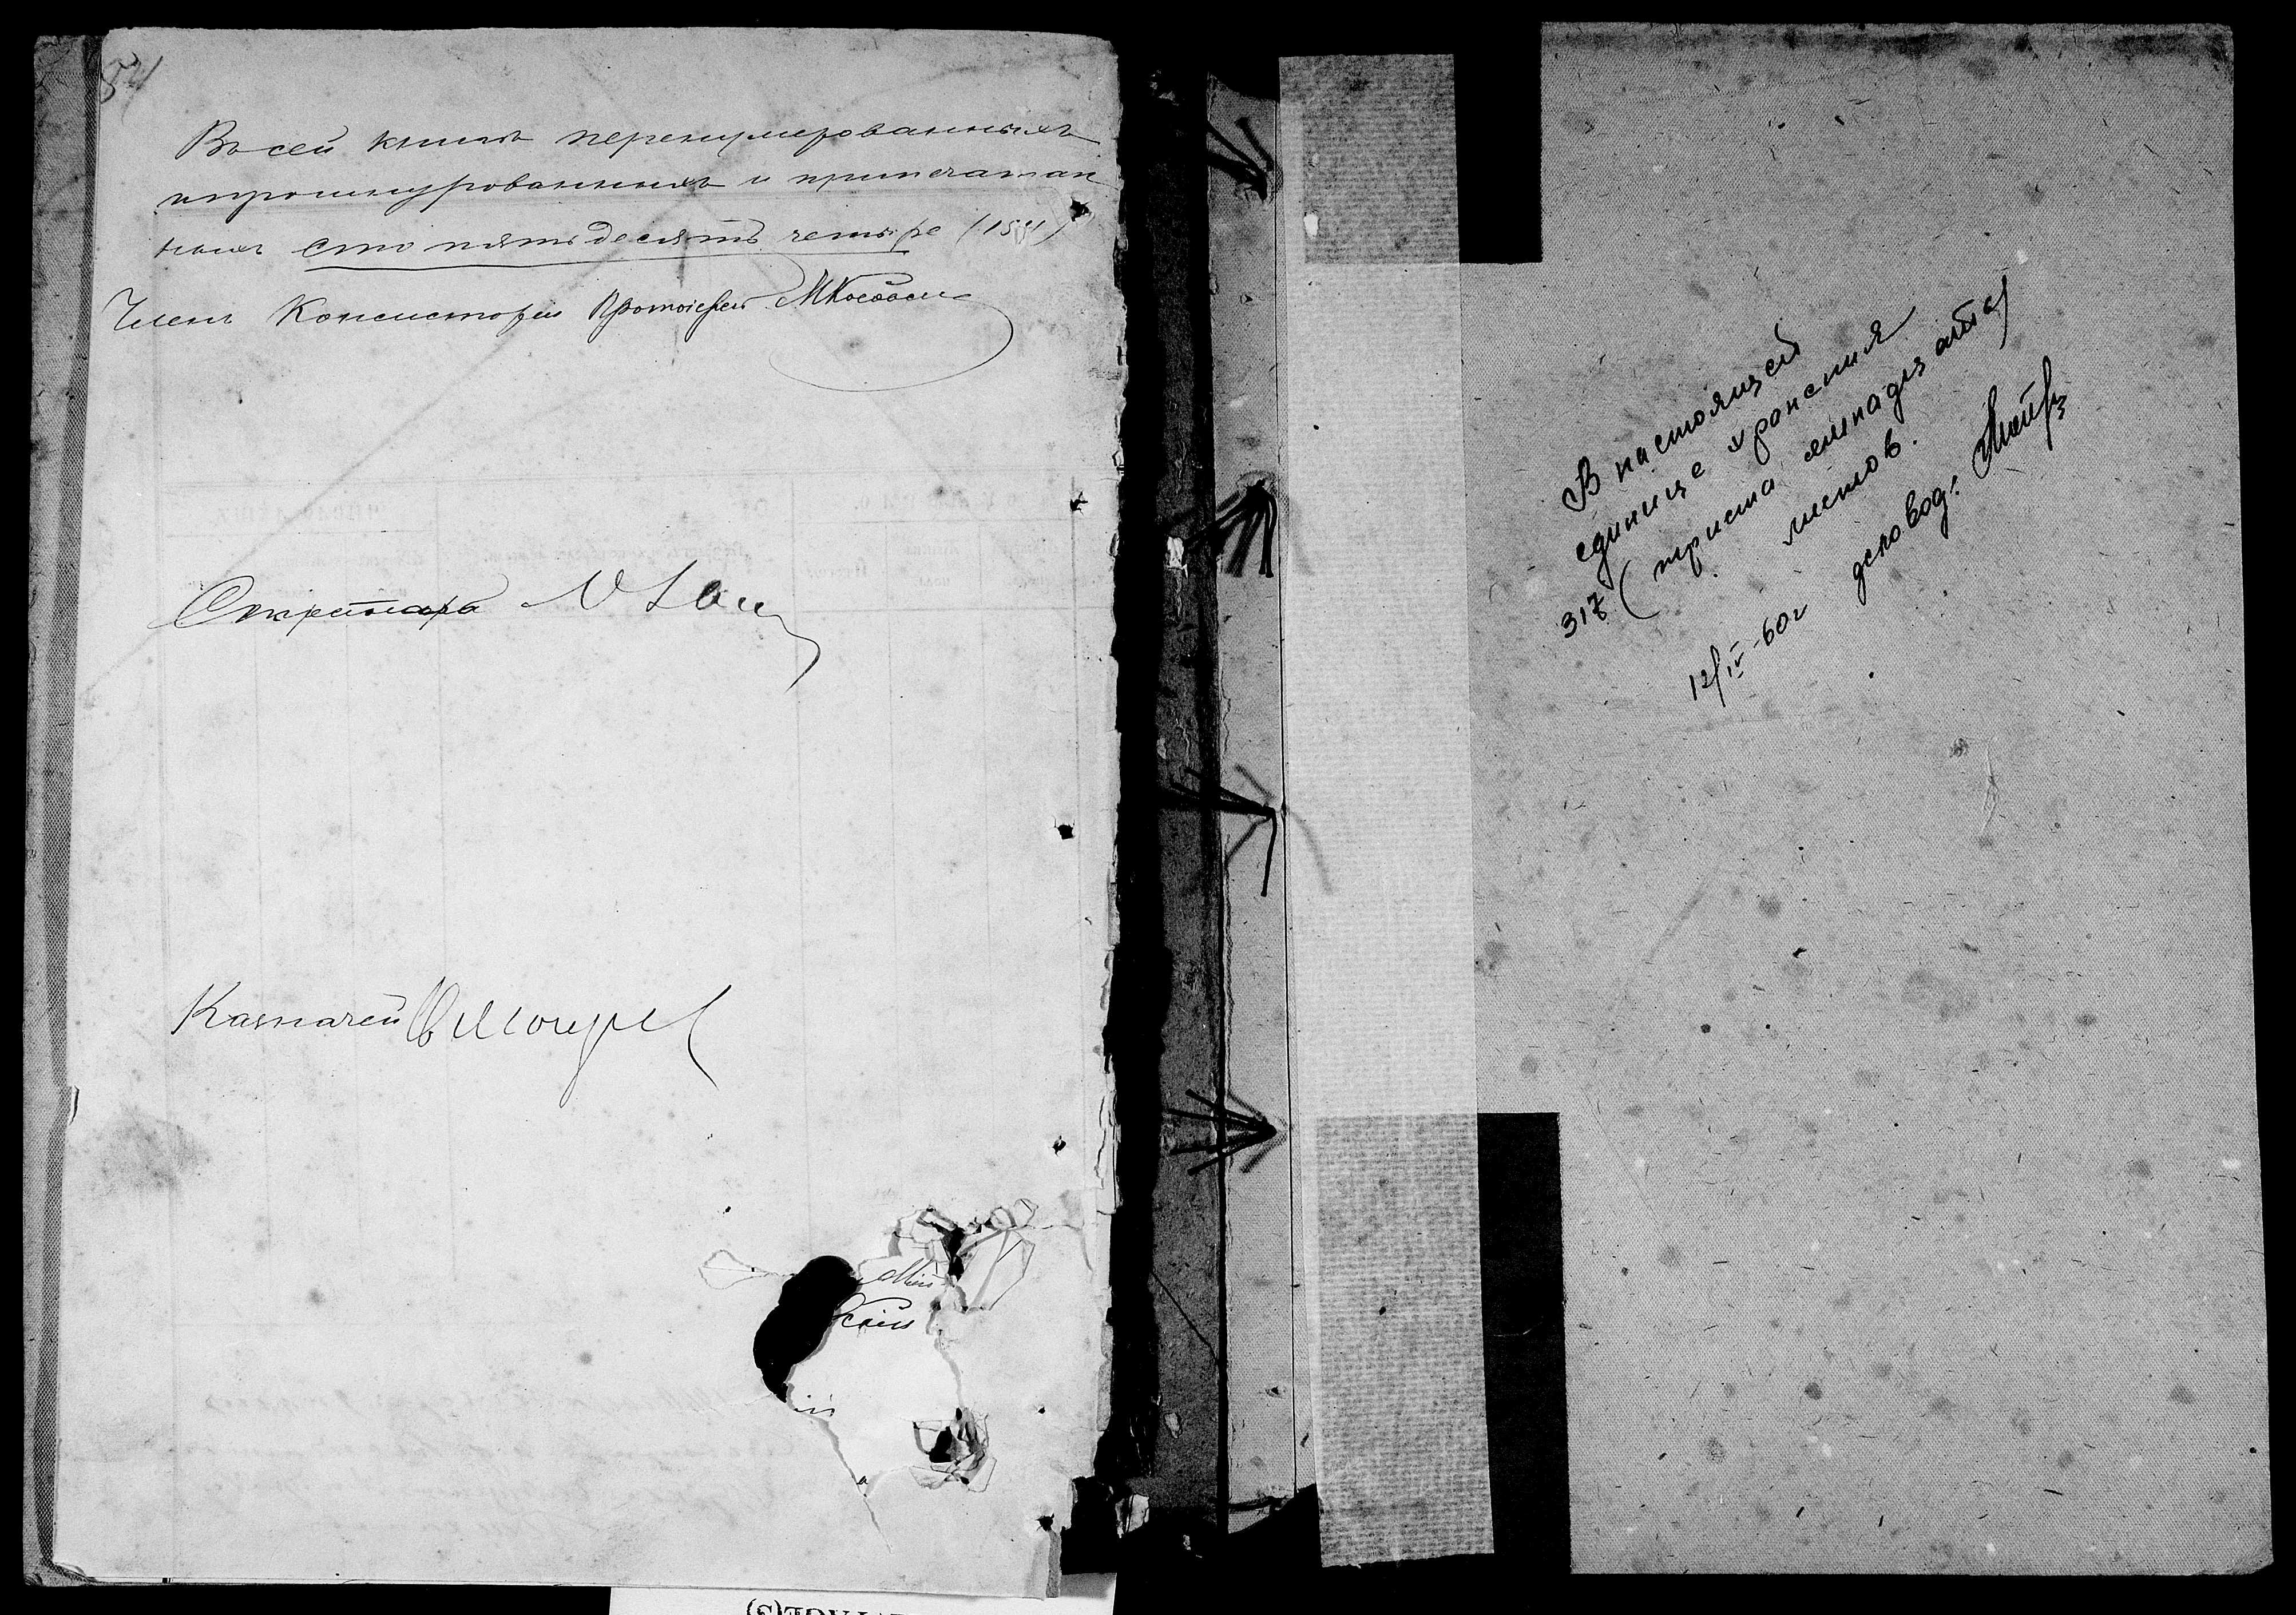 54
Въ сей книгѣ перенумерованныхъ
и прошнурованныхъ и припечатан
ныхъ сто пятьдесятъ четыре (154)
Членъ Консисторіи Протоіерей
Секретарь
Казначей
В настоящей
единице хранения
317 (триста семнадцать)
листов.
12/IV-60г деловод: